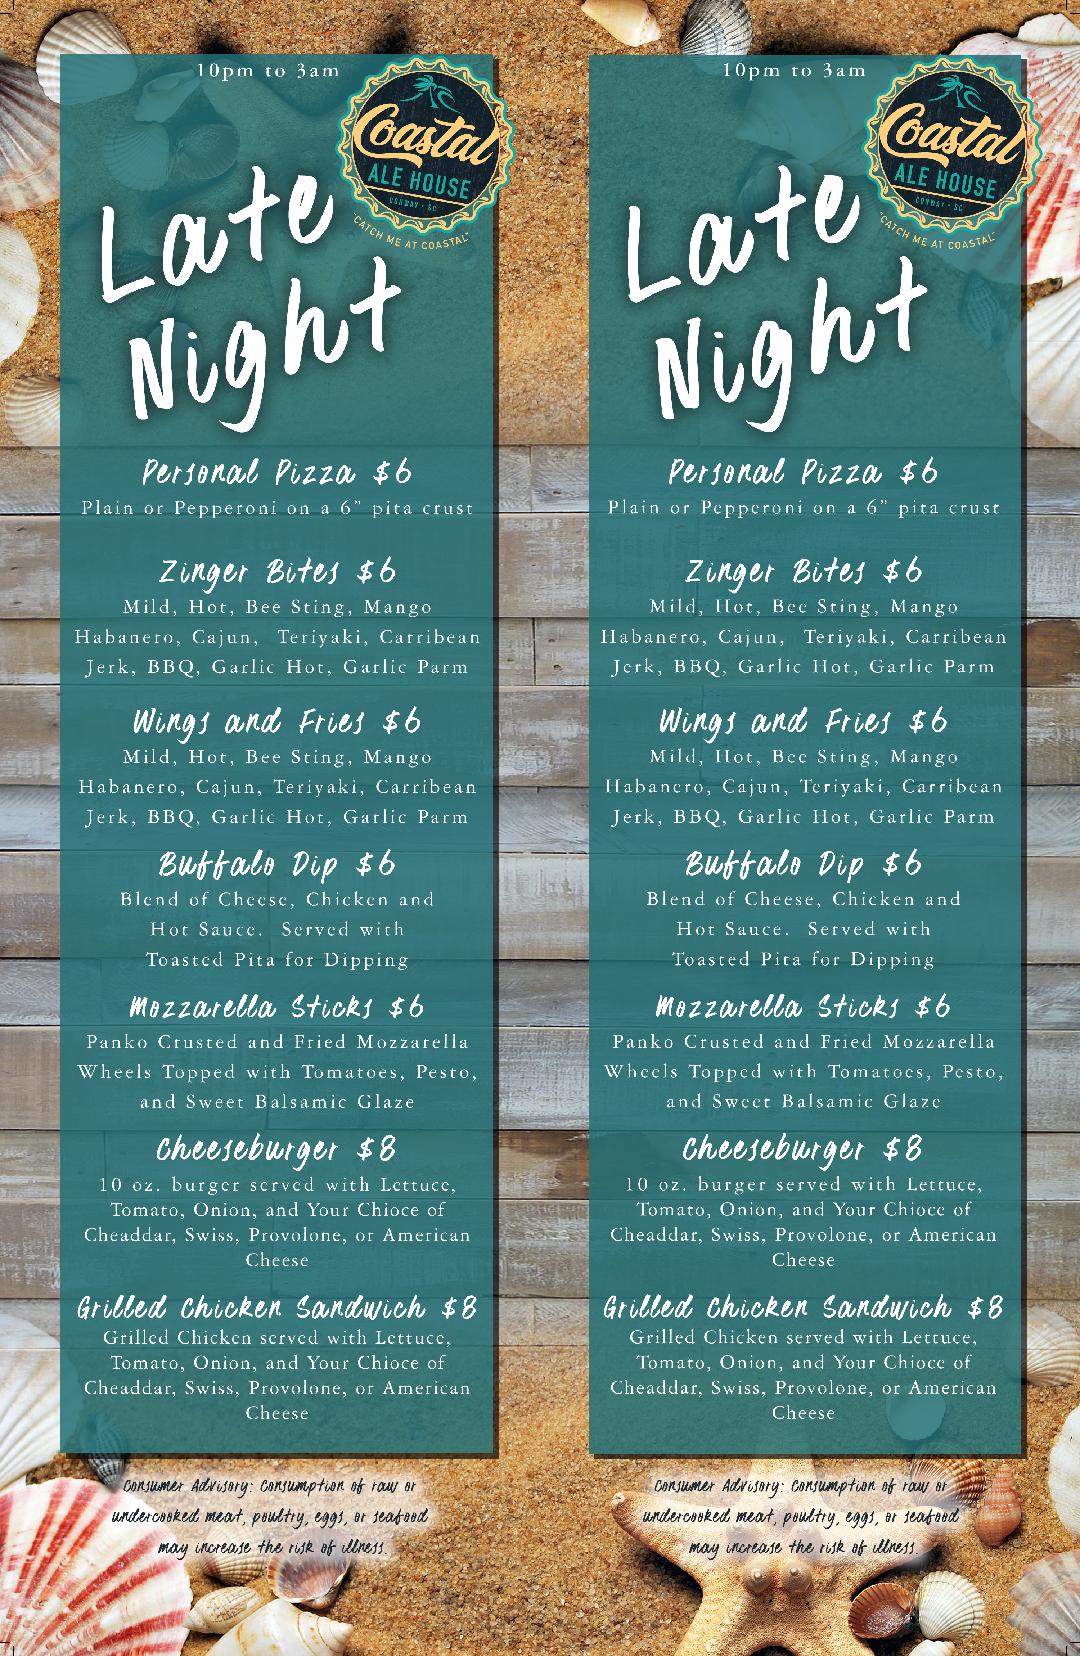 10pm to 3am
Coastal
ALE HOUSE
CONWAY • SC
"CATCH ME AT COASTAL"
Late
Night
Personal Pizza $6
Plain or Pepperoni on a 6” pita crust
Zinger Bites $6
Mild, Hot, Bee Sting, Mango
Habanero, Cajun,  Teriyaki, Carribean
Jerk, BBQ, Garlic Hot, Garlic Parm
Wings and Fries $6
Mild, Hot, Bee Sting, Mango
Habanero, Cajun, Teriyaki, Carribean
Jerk, BBQ, Garlic Hot, Garlic Parm
Buffalo Dip $6
Blend of Cheese, Chicken and
Hot Sauce.  Served with
Toasted Pita for Dipping
Mozzarella Sticks $6
Panko Crusted and Fried Mozzarella
Wheels Topped with Tomatoes, Pesto,
and Sweet Balsamic Glaze
Cheeseburger $8
10 oz. burger served with Lettuce,
Tomato, Onion, and Your Chioce of
Cheaddar, Swiss, Provolone, or American
Cheese
Grilled Chicken Sandwich $8
Grilled Chicken served with Lettuce,
Tomato, Onion, and Your Chioce of
Cheaddar, Swiss, Provolone, or American
Cheese
Consumer Advisory: Consumption of raw or
undercooked meat, poultry, eggs, or seafood
may increase the risk of illness.
10pm to 3am
Coastal
ALE HOUSE
CONWAY • SC
"CATCH ME AT COASTAL"
Late
Night
Personal Pizza $6
Plain or Pepperoni on a 6” pita crust
Zinger Bites $6
Mild, Hot, Bee Sting, Mango
Habanero, Cajun,  Teriyaki, Carribean
Jerk, BBQ, Garlic Hot, Garlic Parm
Wings and Fries $6
Mild, Hot, Bee Sting, Mango
Habanero, Cajun, Teriyaki, Carribean
Jerk, BBQ, Garlic Hot, Garlic Parm
Buffalo Dip $6
Blend of Cheese, Chicken and
Hot Sauce.  Served with
Toasted Pita for Dipping
Mozzarella Sticks $6
Panko Crusted and Fried Mozzarella
Wheels Topped with Tomatoes, Pesto,
and Sweet Balsamic Glaze
Cheeseburger $8
10 oz. burger served with Lettuce,
Tomato, Onion, and Your Chioce of
Cheaddar, Swiss, Provolone, or American
Cheese
Grilled Chicken Sandwich $8
Grilled Chicken served with Lettuce,
Tomato, Onion, and Your Chioce of
Cheaddar, Swiss, Provolone, or American
Cheese
Consumer Advisory: Consumption of raw or
undercooked meat, poultry, eggs, or seafood
may increase the risk of illness.